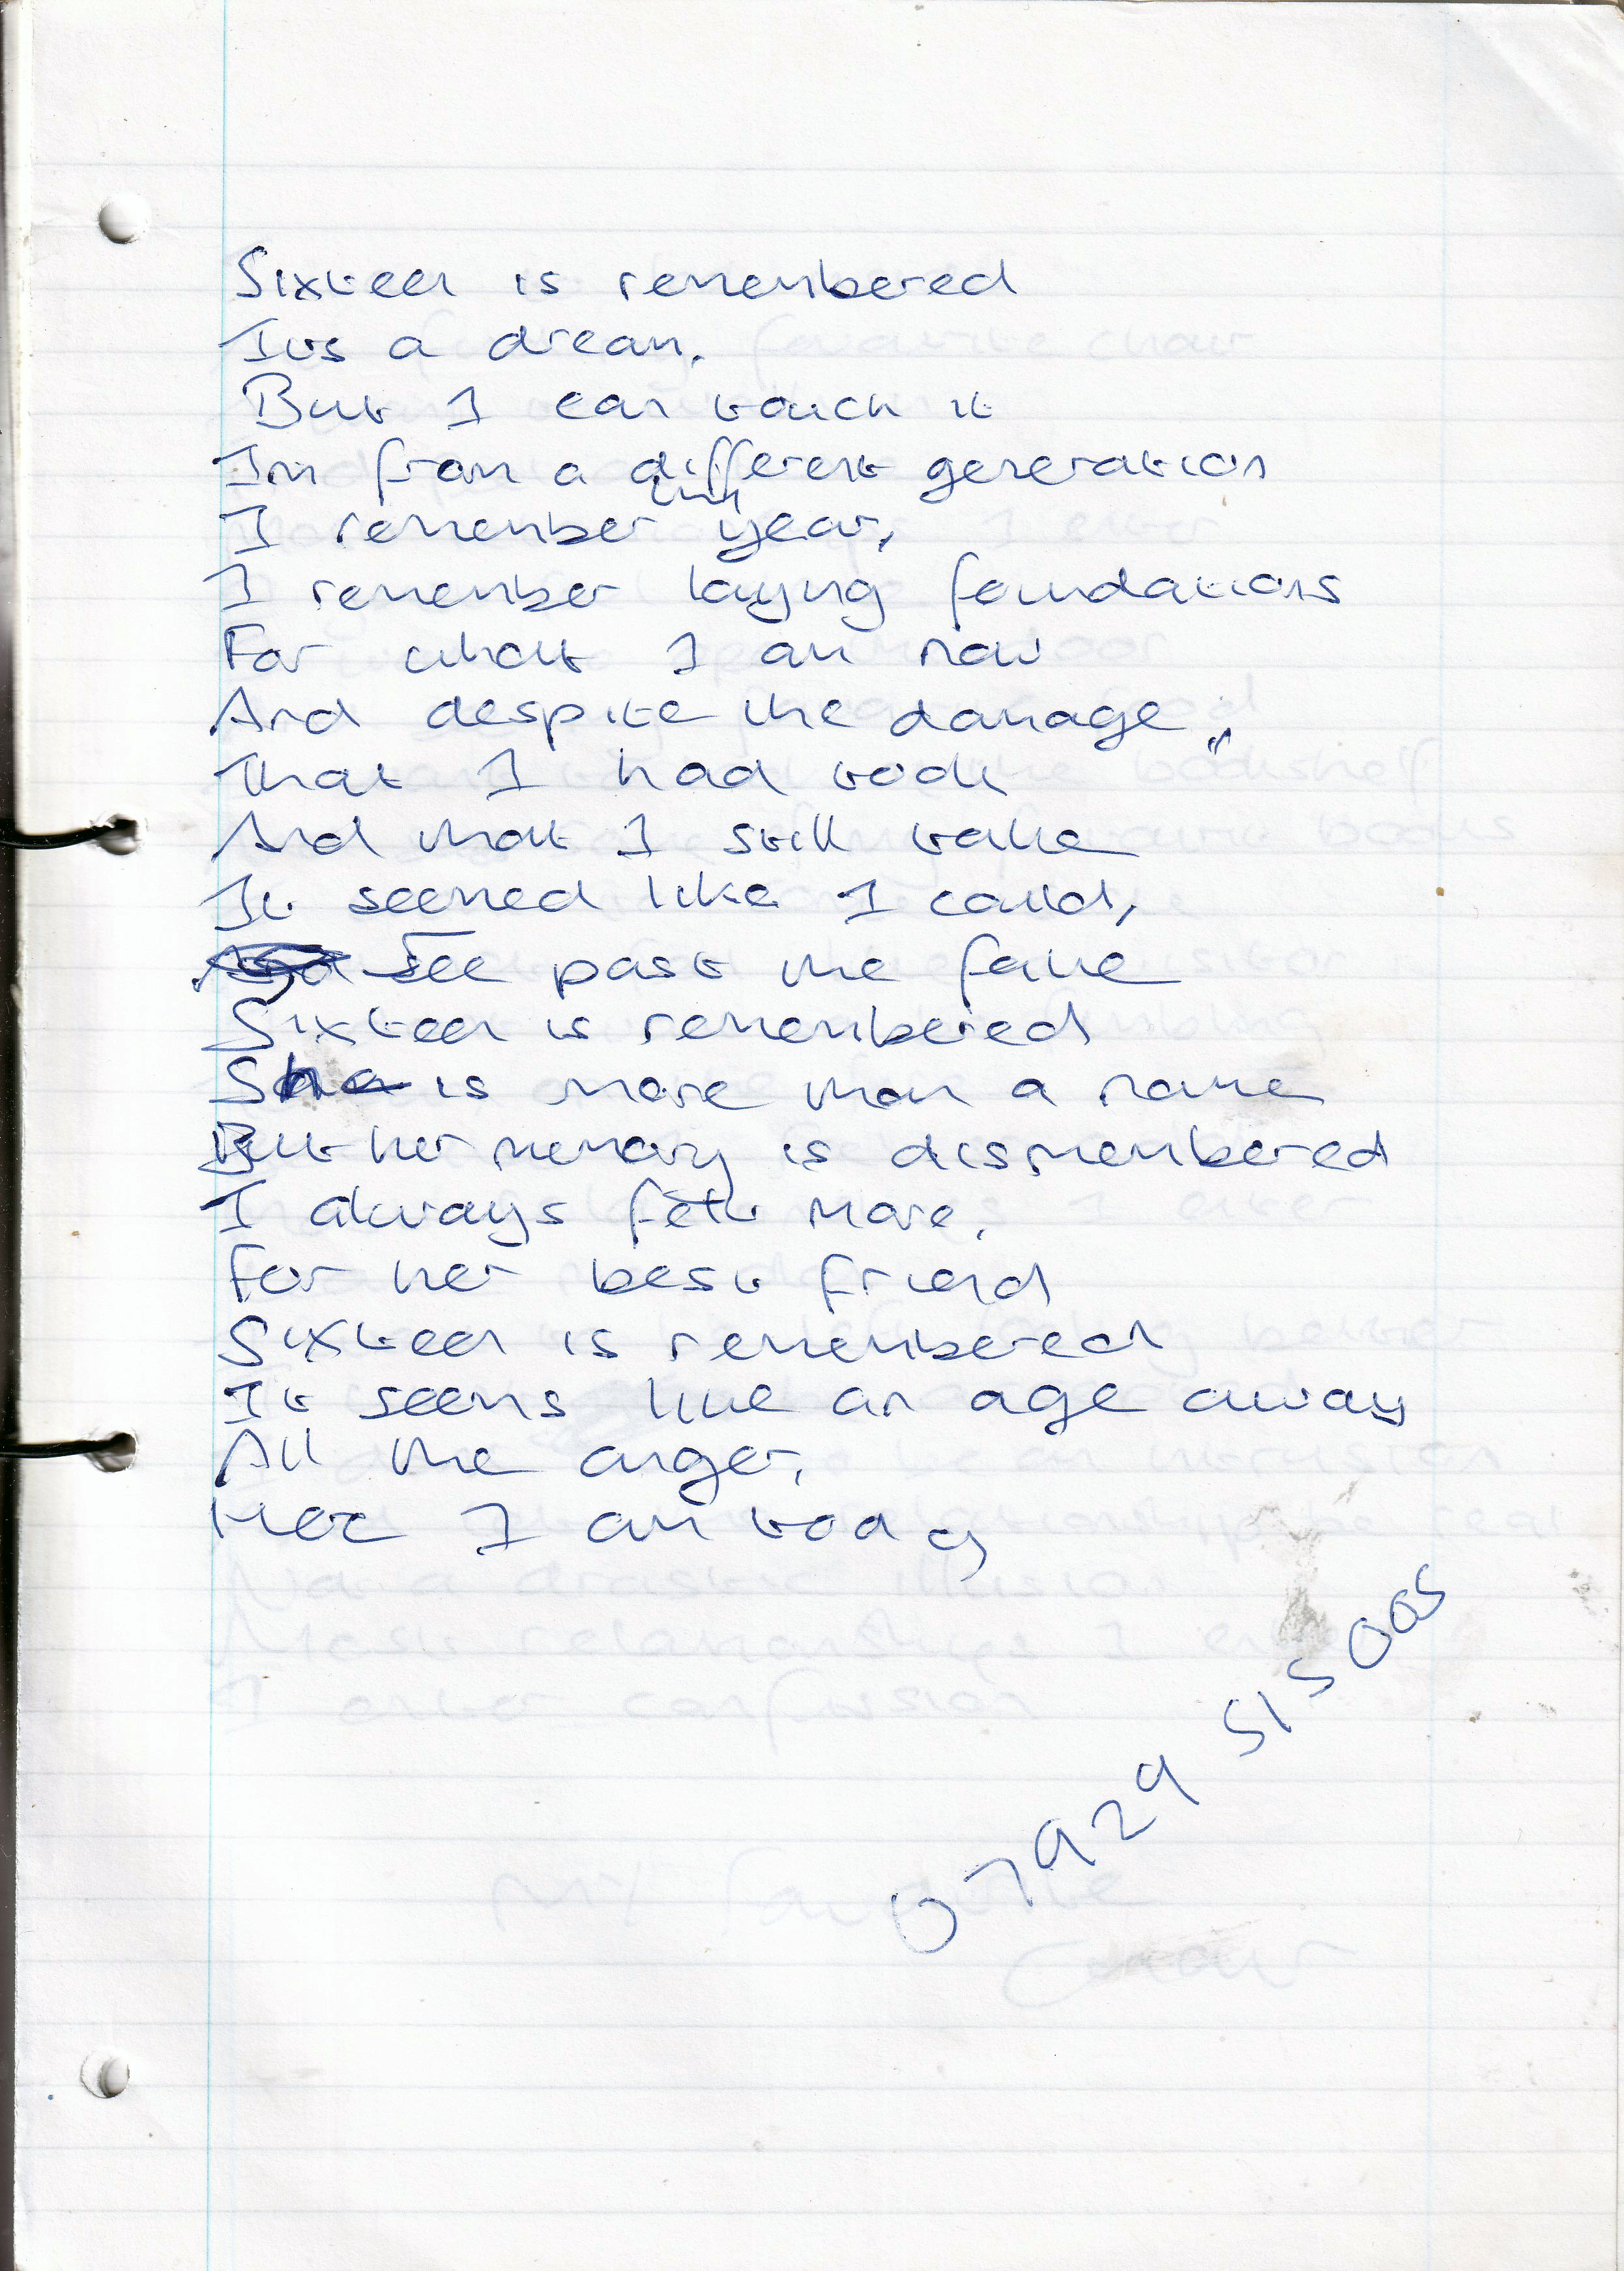 Sixteen is remembered
Its a dream.
But I can touch it
Im from a different generation
I remember year,
I remember laying foundations
For what I am now
And despite the damage,,
That I had took
And that I still take
It seemed like I could,
See past the fake
Sixteen is remembered
She is more than a name
But her memory is dismembered
I always felt more,
For her best friend
Sixteen is remembered
It seems like an age away
All the anger,
Here I am today
07929 515005
My favourite
Chair